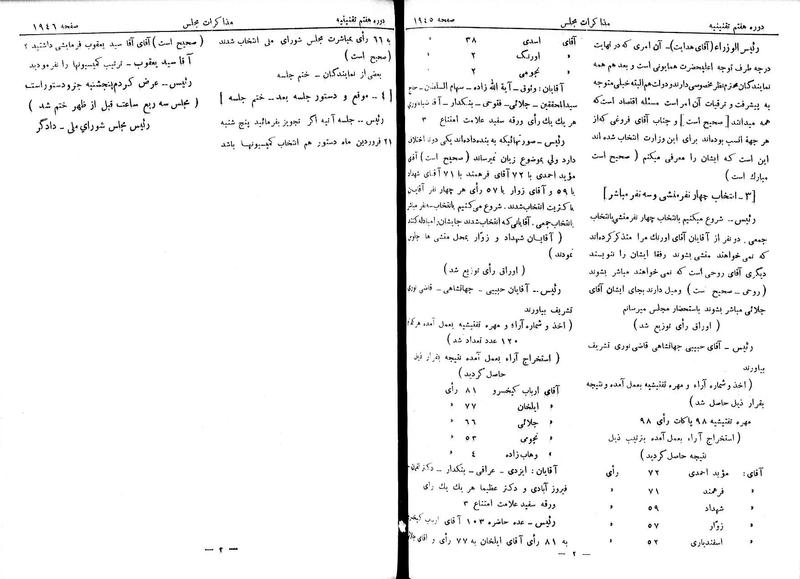 دوره هفتم تقنینیه
مذاکرات مجلس
صفحه ۱۹۴۵
رئیس الوزراء (آقای هدایت) – آن امری که در نهایت
درجه طرف توجه اعلیحضرت همایونی است و بعد هم همه
نمایندگان محترم نظر مخصوصی دارند و دولت هم البته خیلی متوجه
به پیشرفت و ترقیات آن امر است مسئله اقتصاد است که
همه میدانند [صحیح است] و جناب آقای فروغی که از
هر جهة انسب بوده‌اند برای این وزارت انتخاب شده اند
این است که ایشان را معرفی میکنم (صحیح است
مبارک است)
[۳ – انتخاب چهار نفر منشی و سه نفر مباشر]
رئیس – شروع میکنیم بانتخاب چهار نفر منشی بانتخاب
جمعی. دو نفر از آقایان آقای اورنک مرا متذکر کرده‌اند
که نمی خواهند منشی بشوند رفقا ایشان را ننویسند
دیگری آقای روحی است که نمی خواهند مباشر بشوند
(روحی – صحیح است) ومیل دارند بجای ایشان آقای
جلائی مباشر بشوند باستحضار مجلس میرسانم
(اوراق رأی توزیع شد)
رئیس – آقای حبیبی جهانشاهی قاضی نوری تشریف
بیاورند
(اخذ و شماره آراء و مهره تفتیشیه بعمل آمده و نتیجه
بقرار ذیل حاصل شد)
مهره تفتیشیه ۹۸ پاکات رأی ۹۸
(استخراج آراء بعمل آمده بترتیب ذیل
نتیجه حاصل گردید)
آقای: مؤید احمدی ۷۲ رأی
» فرهمند ۷۱ »
» شهداد ۵۹ »
» زوّار ۵۷ »
» اسفندیاری ۵۲ »
آقای اسدی ۳۸ »
» اورنک ۲ »
» نجومی ۲ »
آقایان: وثوق – آیة الله زاده – سهام السلطان –
سید المحققین – جلائی – فتوحی – بنکدار –
هر یك یك رأی ورقه سفید علامت امتناع ۳
رئیس – صورتهائیکه به بنده داده‌اند یکی دوتا اختلاف
دارد ولی بموضوع زیان نمیرساند (صحیح است) آقای
مؤید احمدی با ۷۲ آقای فرهمند با ۷۱ آقای شهداد
با ۵۹ و آقای زوار با ۵۷ رأی هر چهار نفر آقایان
با کثریت انتخاب شدند. شروع می کنیم بانتخاب سه نفر مباشر
بانتخاب جمعی. آقایانی که انتخاب شدند جایشان را مبادله کنند
(آقایان شهداد و زوّار بمحل منشی ها جلوس
نمودند)
(اوراق رأی توزیع شد)
رئیس – آقایان حبیبی – جهانشاهی – قاضی نوری
تشریف بیاورند
(اخذ و شماره آراء و مهره تفتیشیه بعمل آمده
۱۲۰ عدد تعداد شد)
(استخراج آراء بعمل آمده نتیجه بقرار ذیل
حاصل گردید)
آقای ارباب کیخسرو ۸۱ رأی
» ایلخان ۷۷ »
» جلائی ۶۶ »
» نجومی ۵۳ »
» وهاب‌زاده ۴ »
آقایان: ایزدی – عراقی – بنکدار – دکتر
فیروز آبادی و دکتر عظیما هر یك یك رأی
ورقه سفید علامت امتناع ۳
رئیس – عده حاضره ۱۰۳ آقای ارباب کیخسرو
به ۸۱ رأی آقای ایلخان به ۷۷ رأی و آقای جلائی
– ۲ –
دوره هفتم تقنینیه
مذاکرات مجلس
صفحه ۱۹۴۶
به ۶۶ رأی بمباشرت مجلس شورای ملی انتخاب شدند
(صحیح است)
بعضی از نمایندگان – ختم جلسه
[۴ – موقع و دستور جلسه بعد – ختم جلسه]
رئیس – جلسه آتیه اگر تجویز بفرمائید پنج شنبه
۲۱ فروردین ماه دستور هم انتخاب کمیسیونها باشد
(صحیح است) آقای آقا سید یعقوب فرمایشی داشتید؟
آقا سید یعقوب – ترتیب کمیسیونها را نفرمودید
رئیس – عرض کردم پنجشنبه جزو دستور است
(مجلس سه ربع ساعت قبل از ظهر ختم شد)
رئیس مجلس شورای ملی – دادگر
– ۳ –